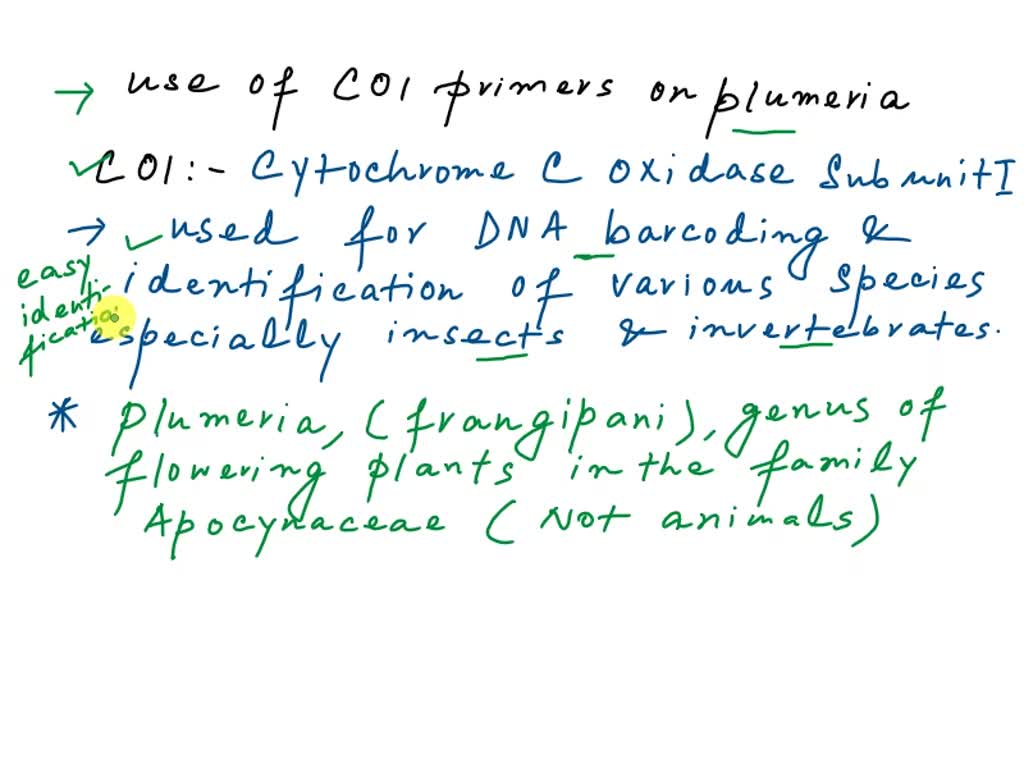 → use of COI primers on plumeria
✓ COI:- Cytochrome C oxidase Subunit I
→ ✓ used for DNA barcoding &
identification of various species
especially insects & invertebrates.
easy
identi-
fication
* Plumeria, (frangipani), genus of
flowering plants in the family
Apocynaceae (Not animals)